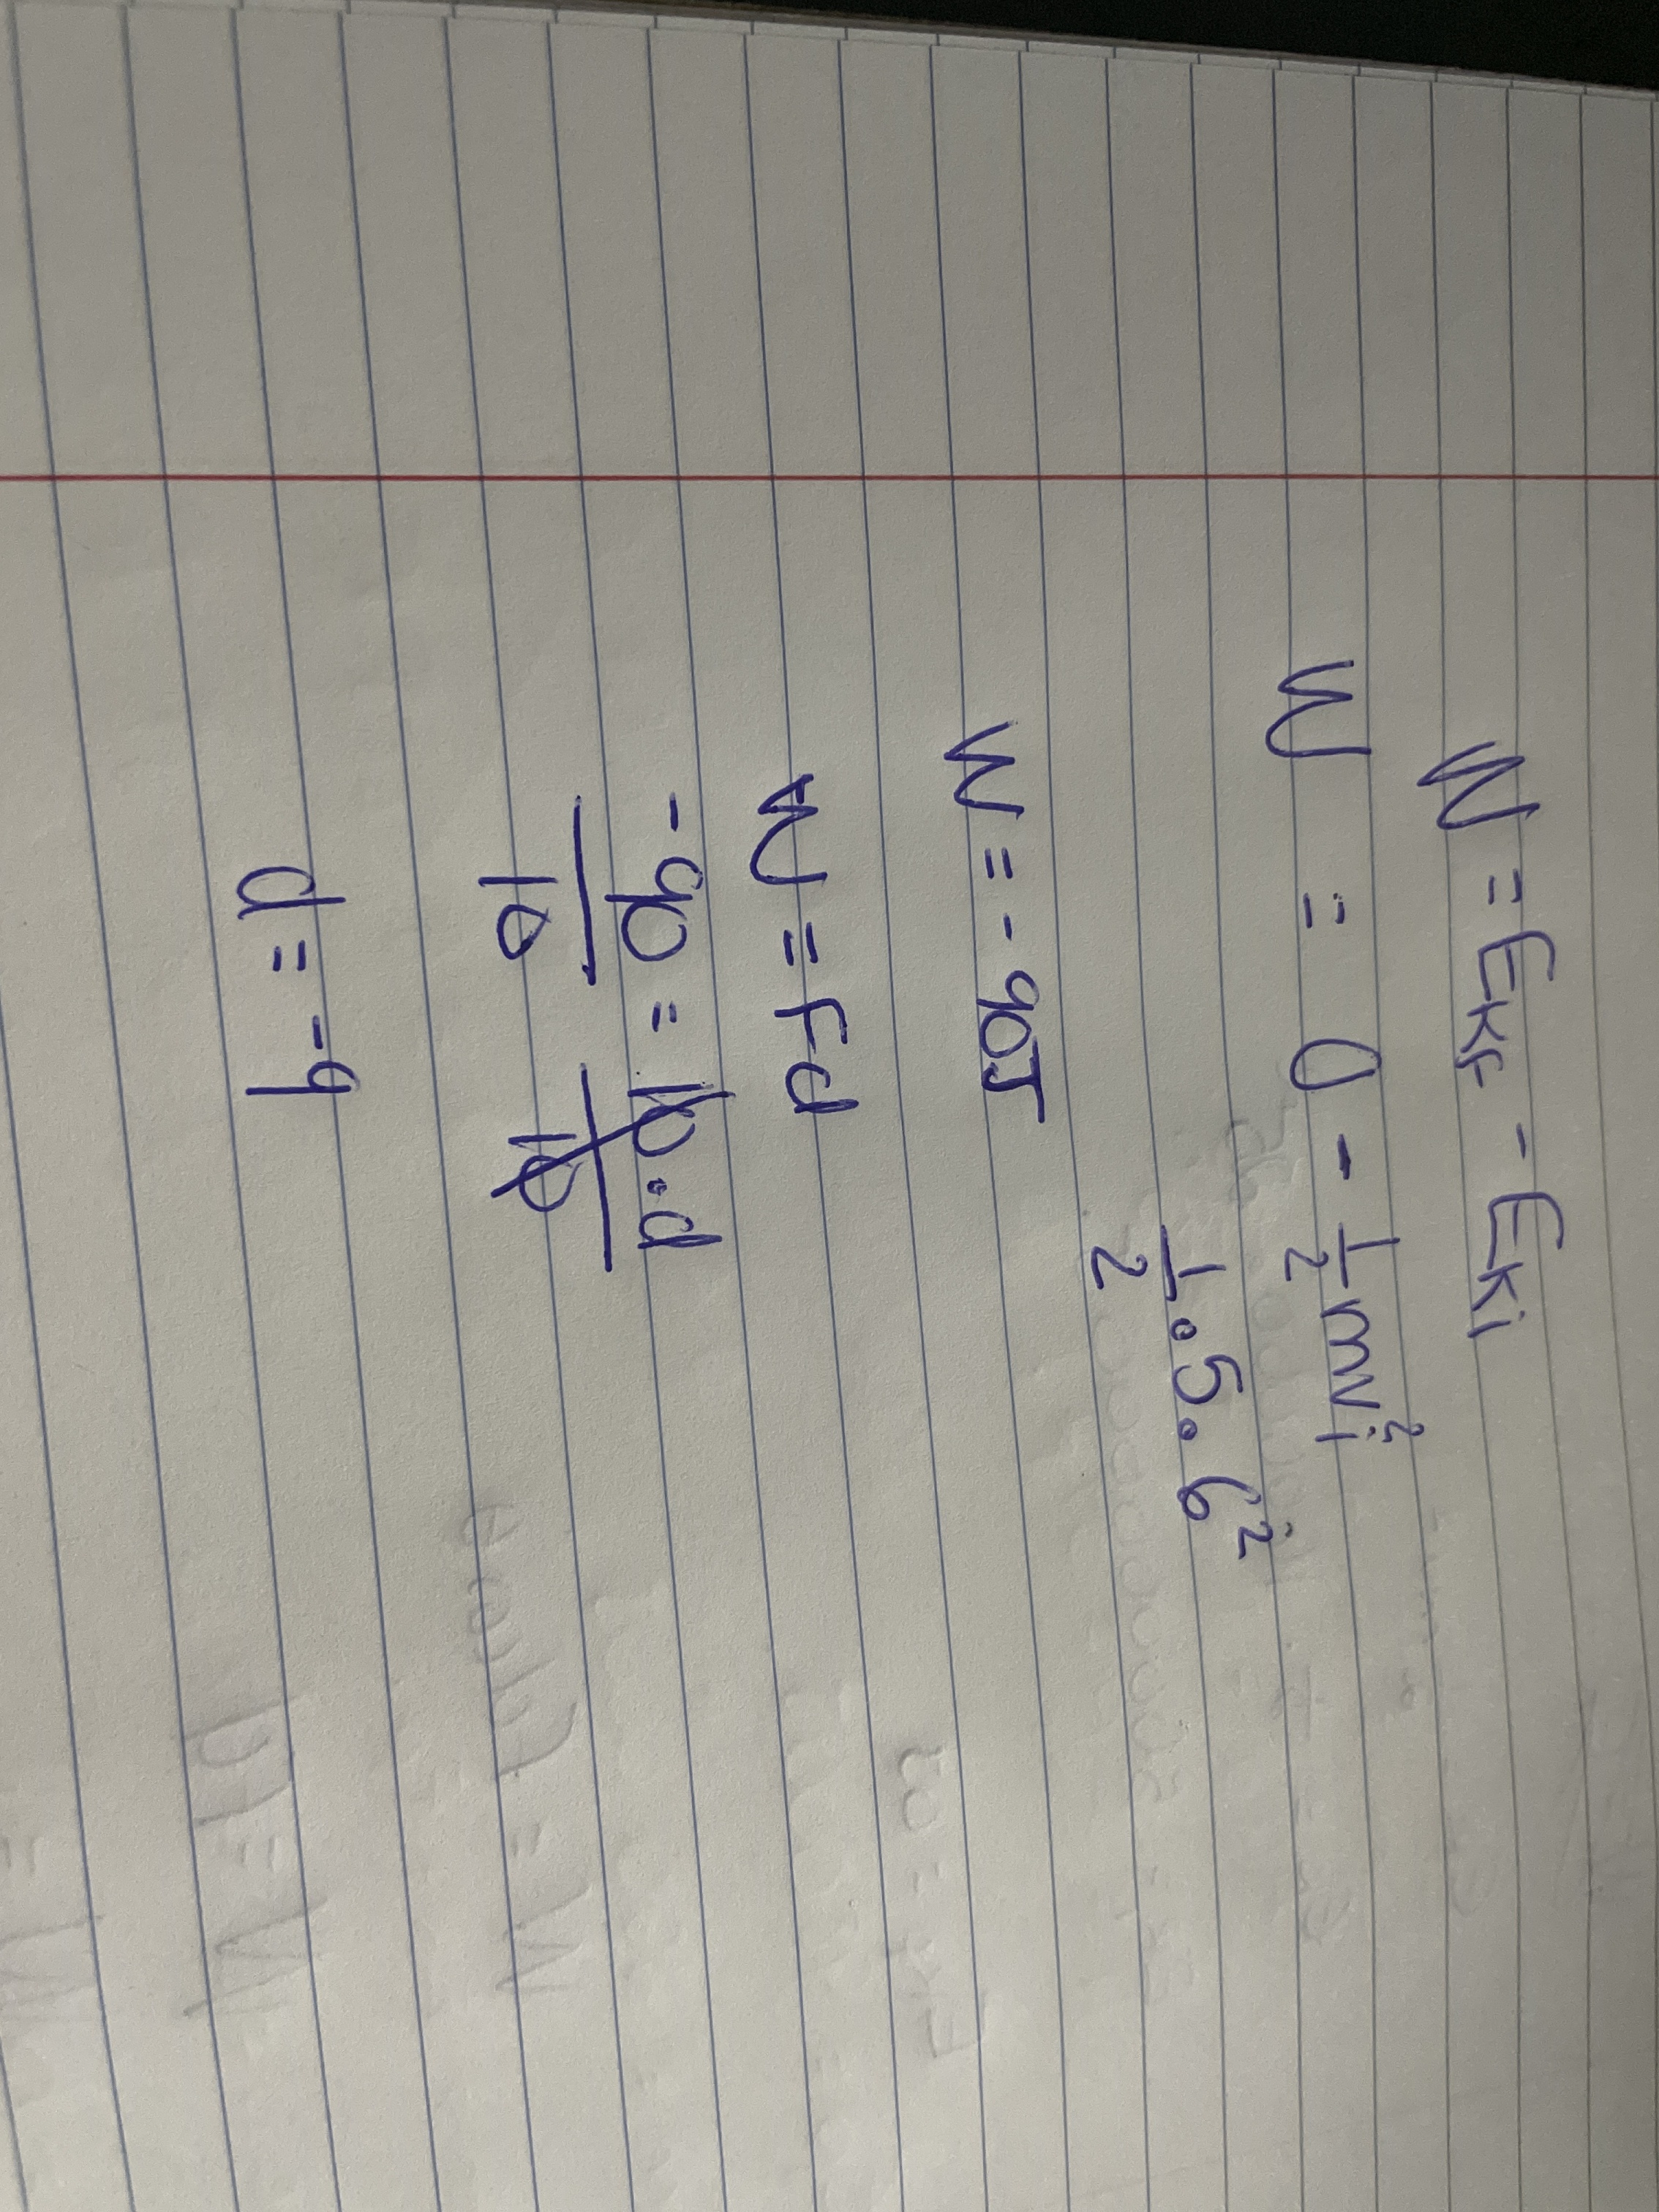 W = Ekf - Eki
W = 0 - 1/2 mvi²
1/2 · 5 · 6²
W = - 90J
W = Fd
- 90/10 = 10·d/10
d = - 9